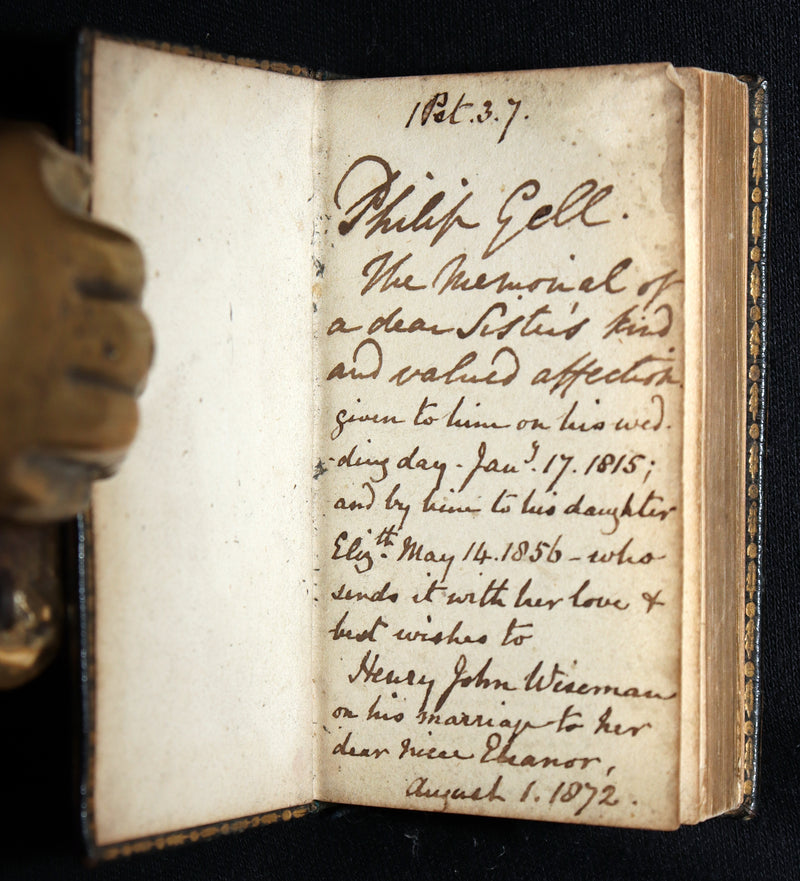 1 Pet. 3. 7.
Philip Gell.
The Memorial of
a dear Sister's kind
and valued affection
given to him on his wed-
-ding day - Janʸ. 17. 1815;
and by him to his daughter
Elizᵗʰ. May 14. 1856 - who
sends it with her love &
best wishes to
Henry John Wiseman
on his marriage to her
dear niece Eleanor,
August 1. 1872.